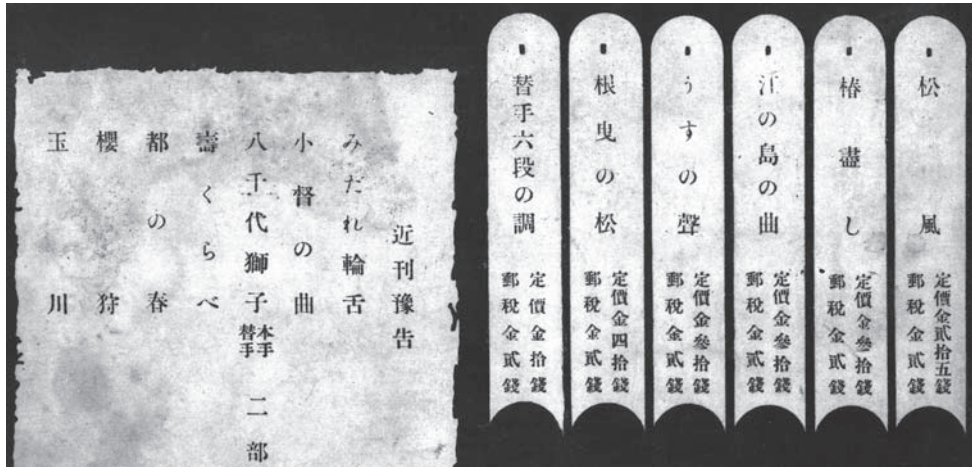 松風
定價金貳拾五錢
郵税金貳錢
椿盡し
定價金參拾錢
郵税金貳錢
江の島の曲
定價金參拾錢
郵税金貳錢
うすの聲
定價金參拾錢
郵税金貳錢
根曳の松
定價金四拾錢
郵税金貳錢
替手六段の調
定價金拾錢
郵税金貳錢
近刊豫告
みだれ輪舌
小督の曲
八千代獅子 本手 替手 二部
壽くらべ
都の春
櫻狩
玉川